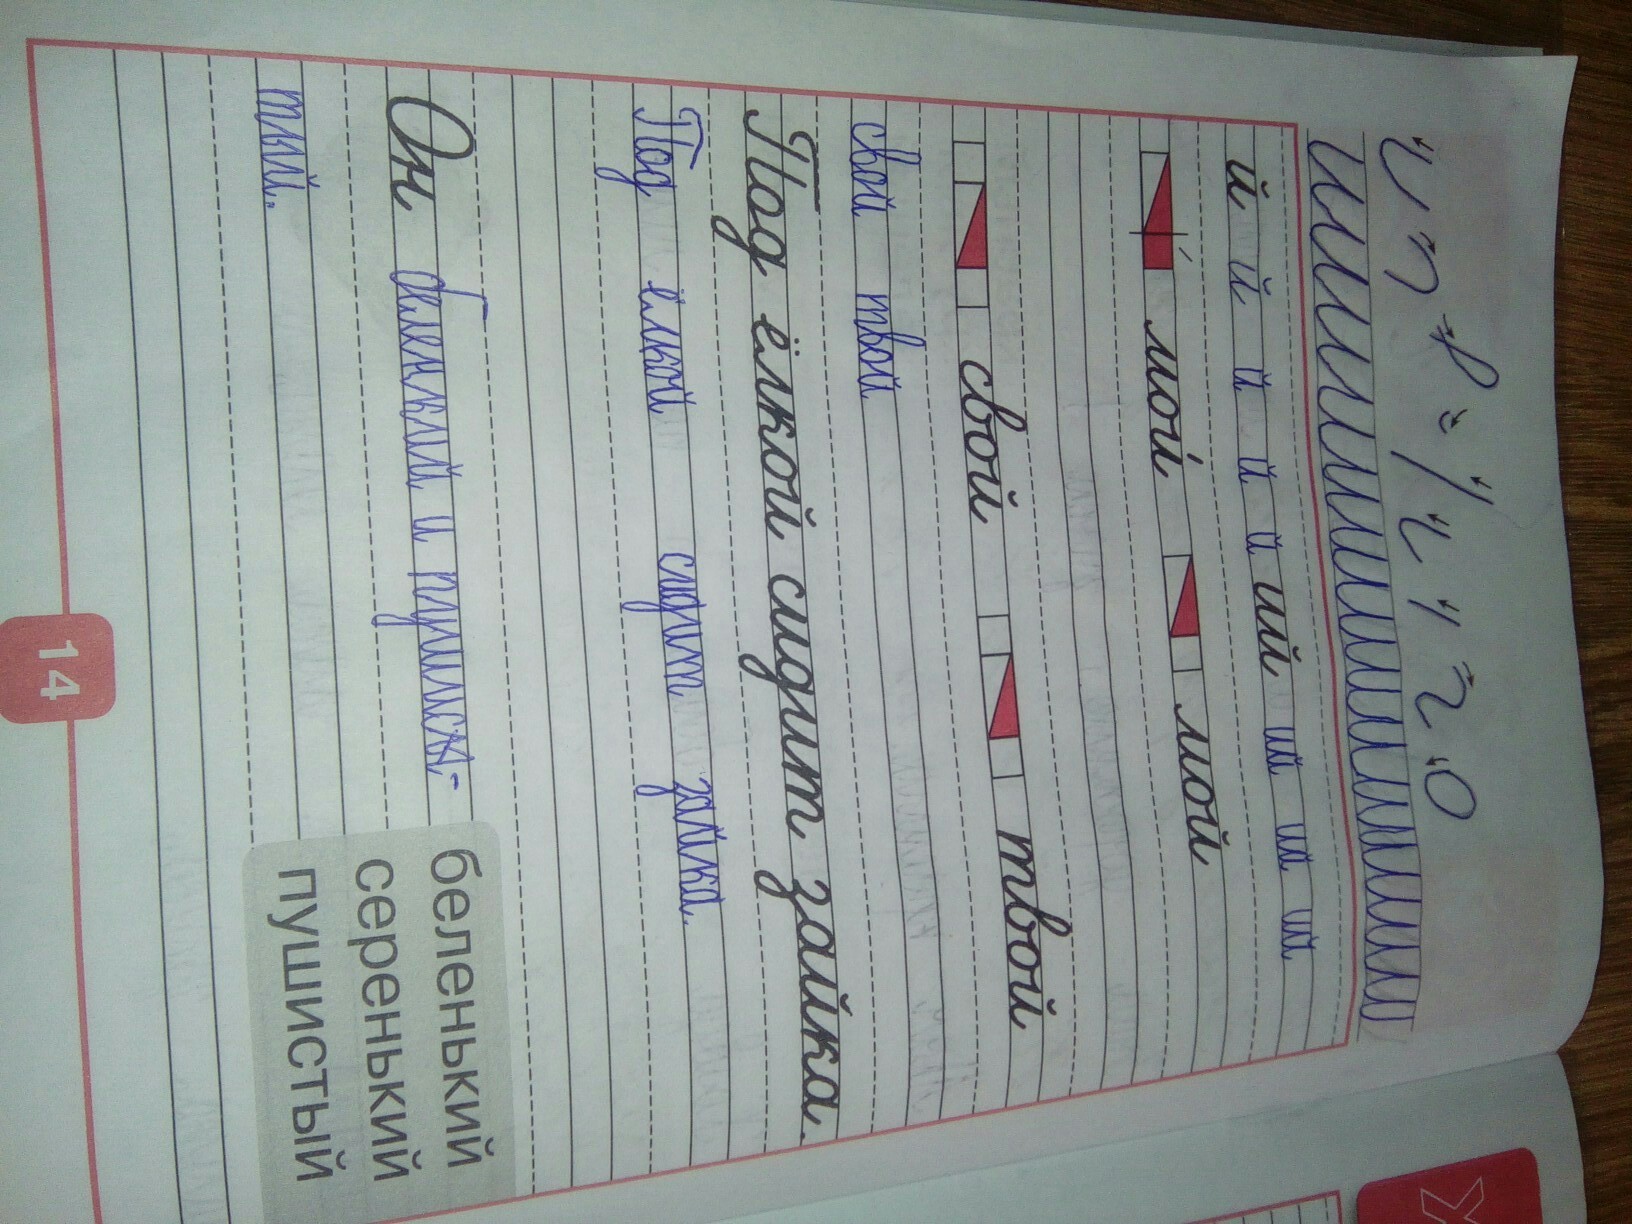 й й й й й й ий ий ий ий
мо́й мой
свой твой
свой твой
Под ёлкой сидит зайка.
Под ёлкой сидит зайка.
Он беленький и пушис-
тый.
беленький
серенький
пушистый
14
Х